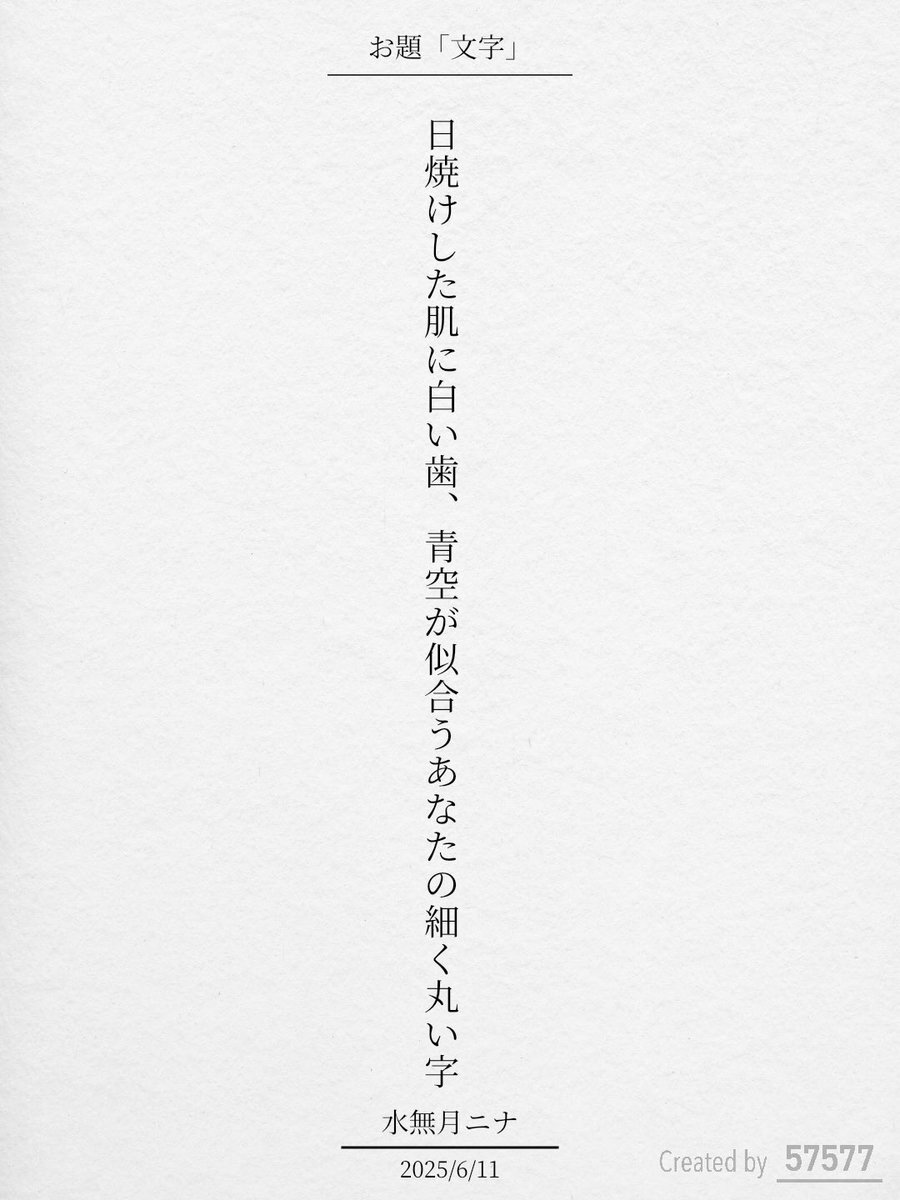 お題「文字」
日焼けした肌に白い歯、青空が似合うあなたの細く丸い字
水無月ニナ
2025/6/11
Created by 57577